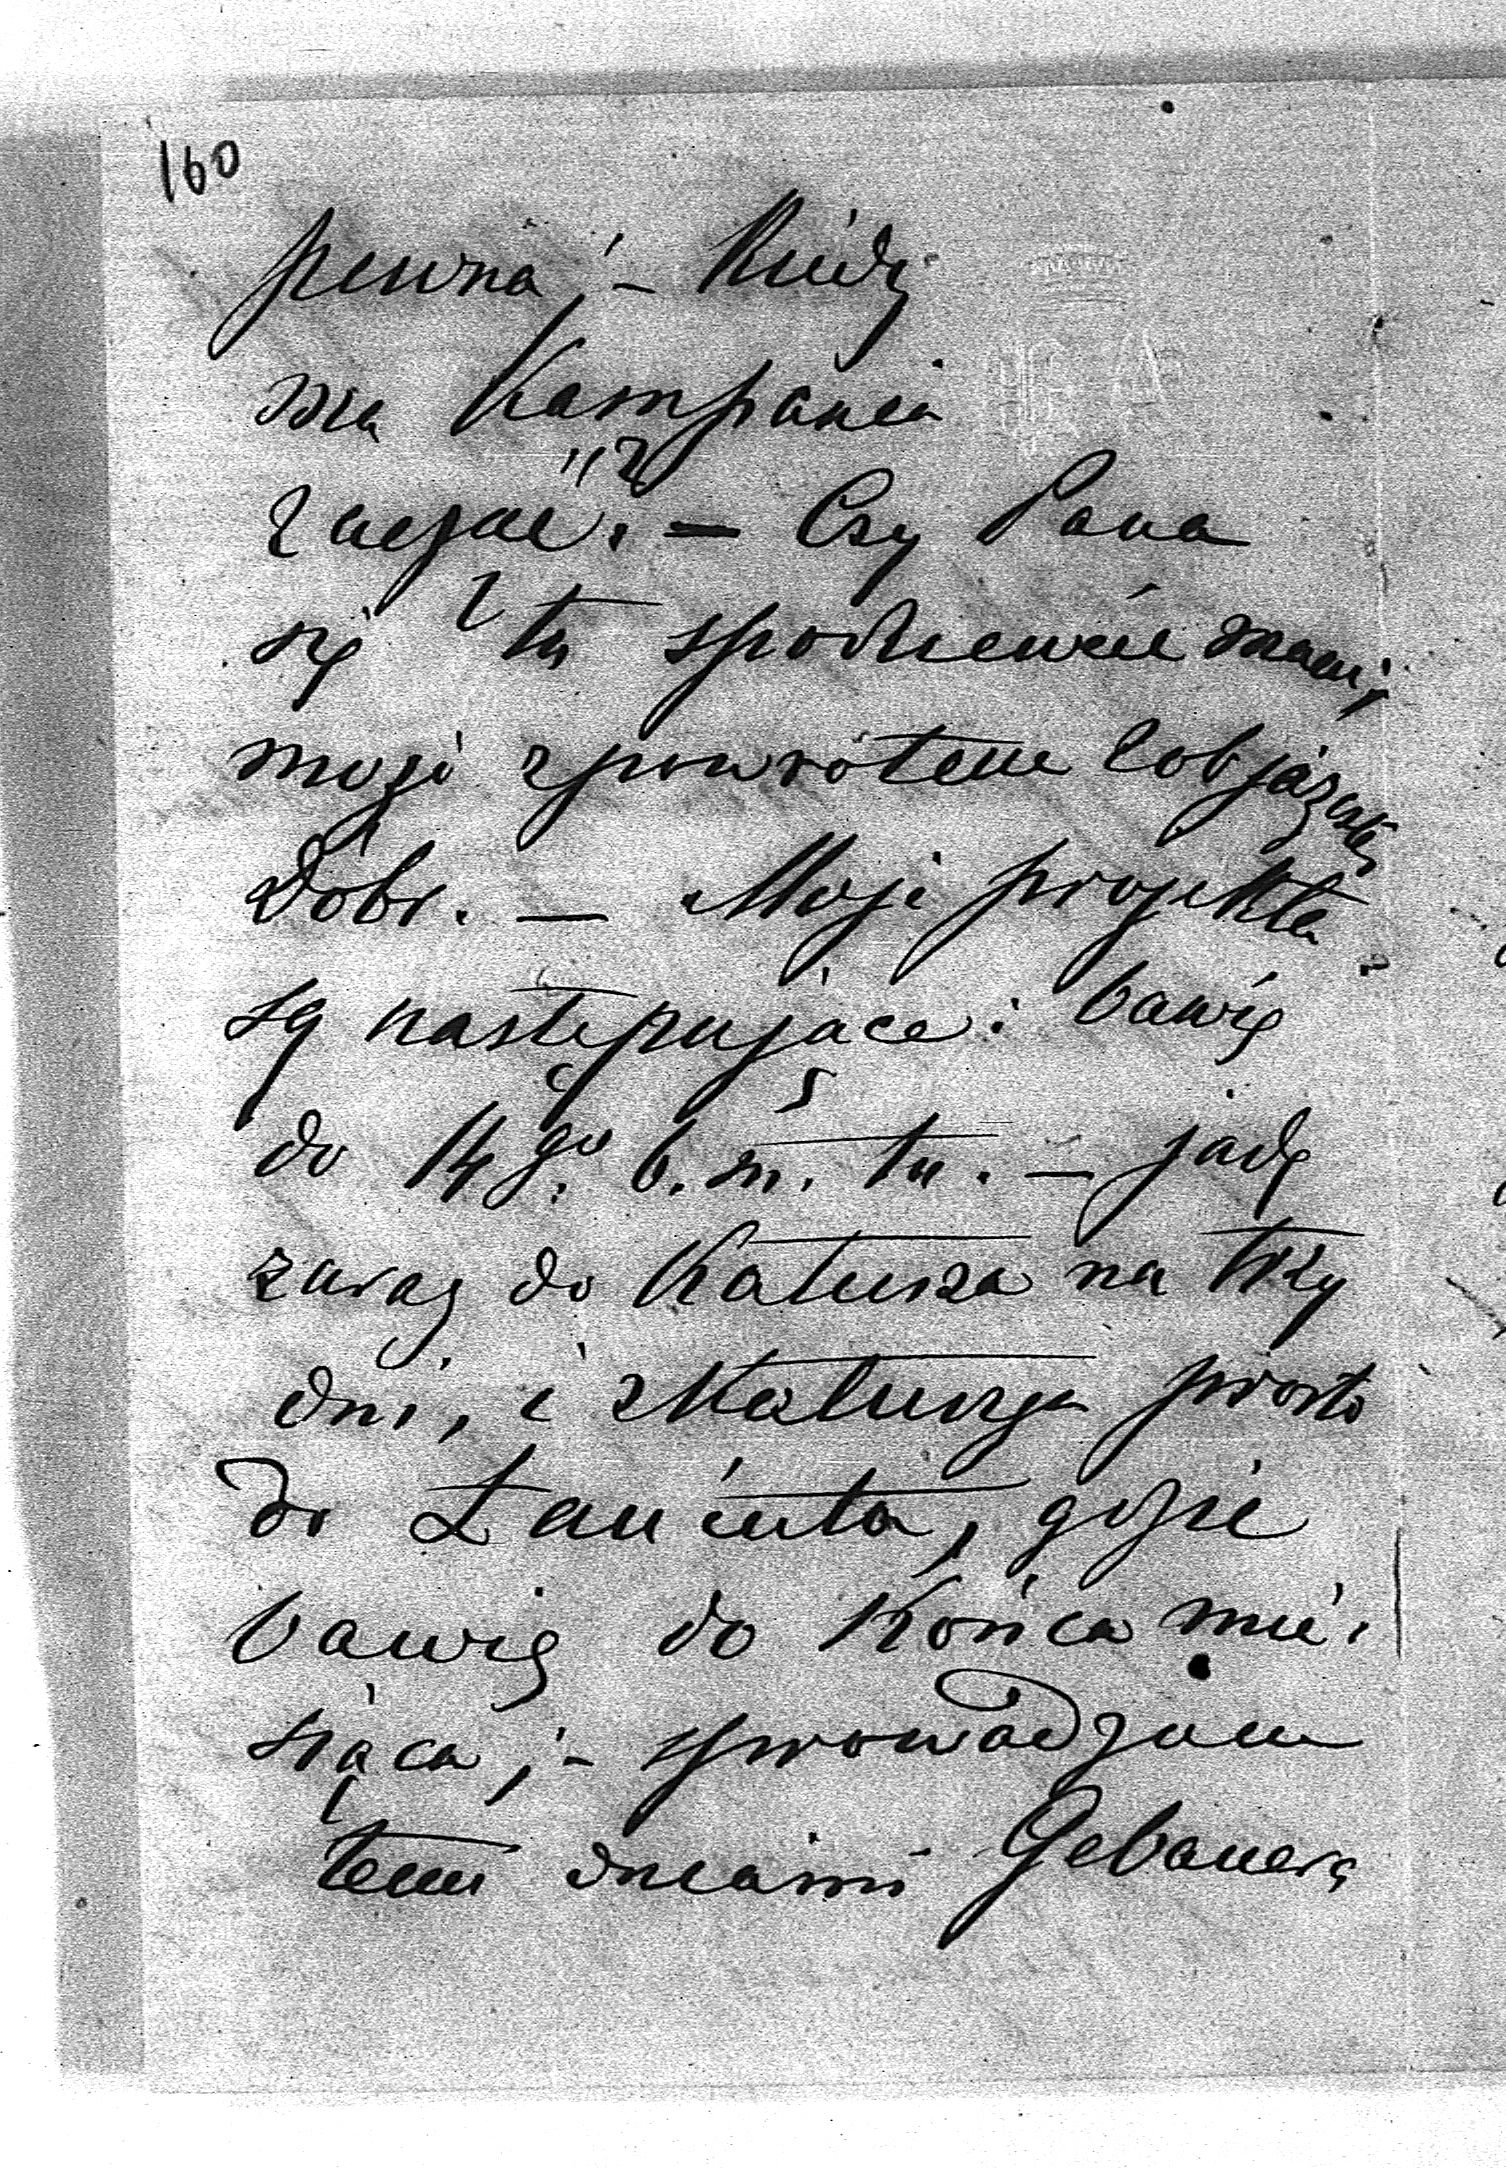 160
pewna; – Kiedy
ma Kampania
zacząć? – Czy Pana
się tu spodziewać mam,
może z powrotem z objazdu
dóbr. – Moje projekta
są następujące: bawię
do 14go b. m. tu. – jadę
zaraz do Katusza na trzy
dni, i z Katusza prosto
do Łańcuta, gdzie
bawię do końca mie-
siąca; – sprowadzam
temi dniami Gebauera